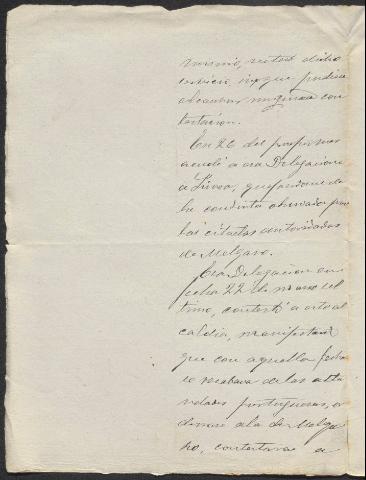 mismo, visto dicho
servicio, sin que pudiera
alcanzar ninguna con
testacion.
En 26 del propio mes
acudí a esa Delegacion
a quejandome de
la conducta observada por
las citadas autoridades
de Melgaso.
Esa Delegacion en
fecha 22 de Marzo úl
timo, contestó a esta al
caldia, manifestando
que con aquella fecha
se recababa de las auto
ridades portuguesas, or
denase a la de Melga
so, contestara a